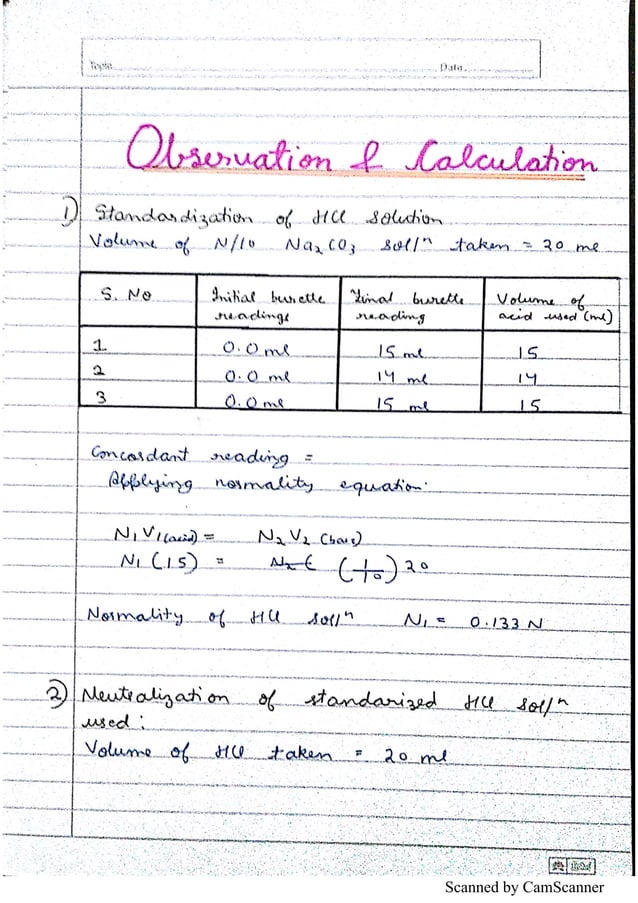 Topic Date
Observation & Calculation
1) Standardization of HCl solution
Volume of N/10 Na2CO3 sol/n taken = 20 ml
S. No Initial burette readings Final burette reading Volume of acid used (ml)
1 0.0 ml 15 ml 15
2 0.0 ml 14 ml 14
3 0.0 ml 15 ml 15
Concordant reading =
Applying normality equation:
N1V1(acid) = N2V2 (base)
N1 (15) = (1/10) 20
Normality of HCl sol/n N1 = 0.133 N
2) Neutralization of standarized HCl sol/n
used:
Volume of HCl taken = 20 ml
Scanned by CamScanner